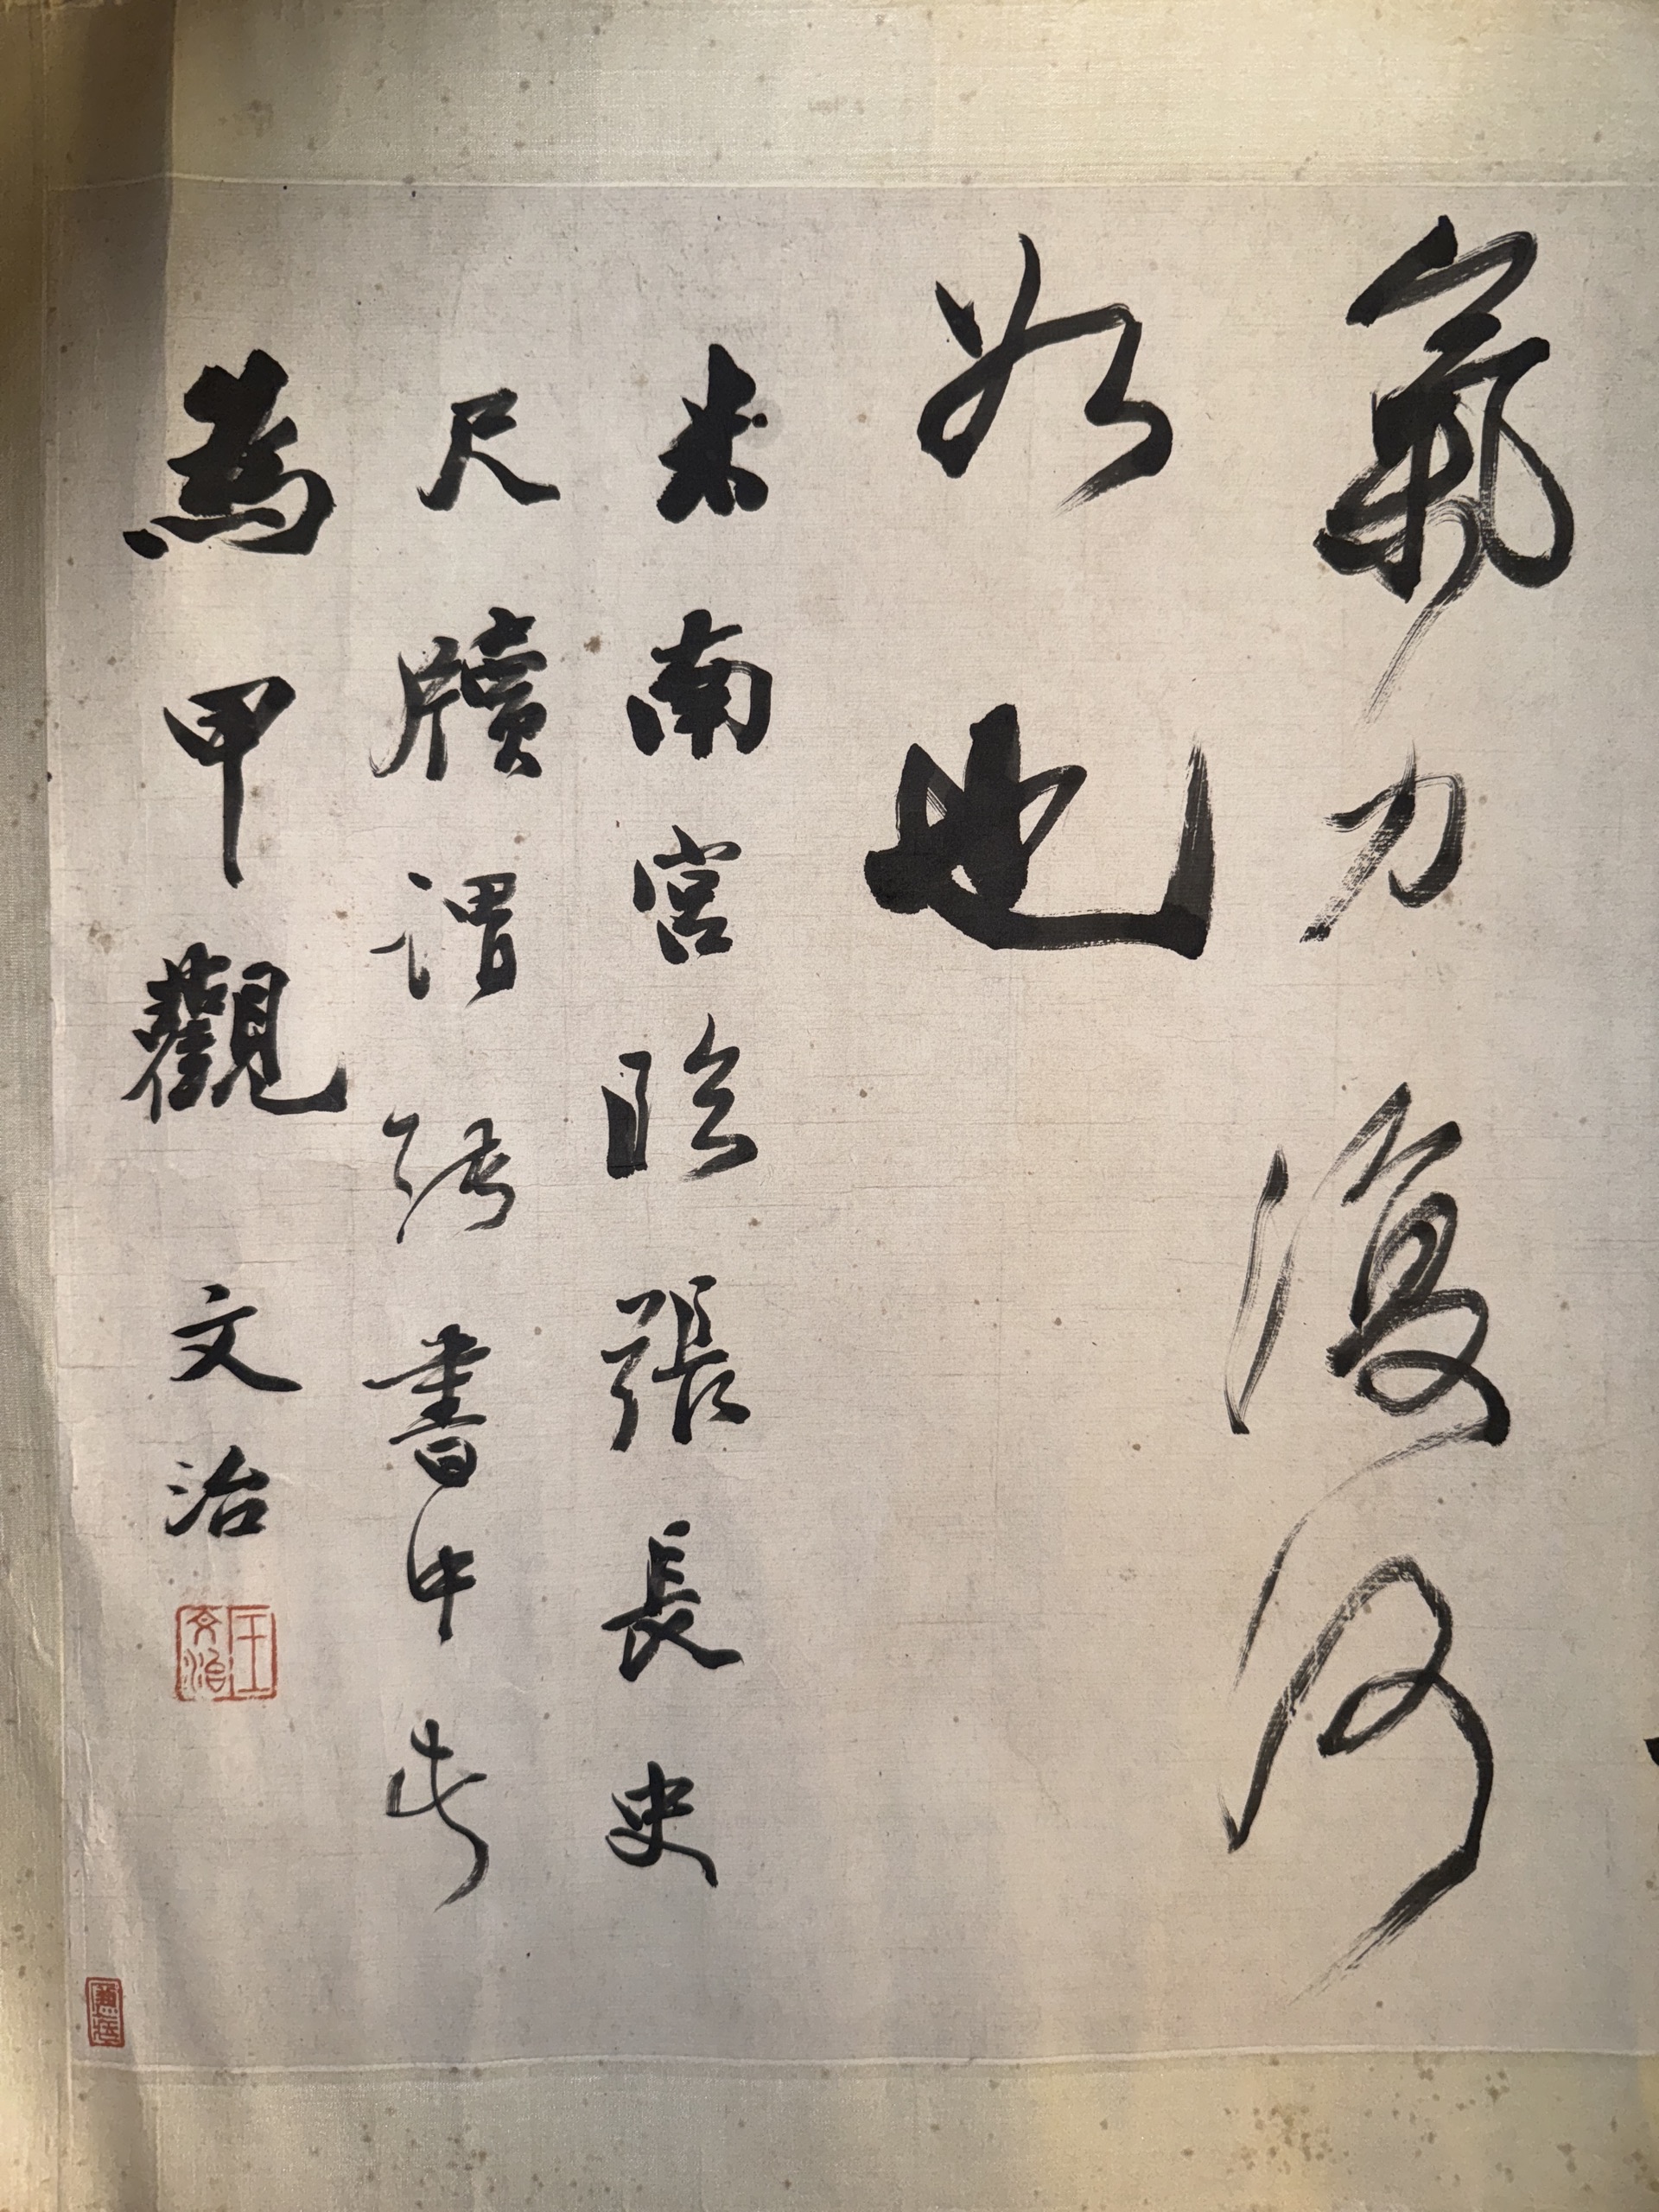 氣力復何
如也
米南宮臨張長史
尺牘謂張書中此
為甲觀 文治
王文治